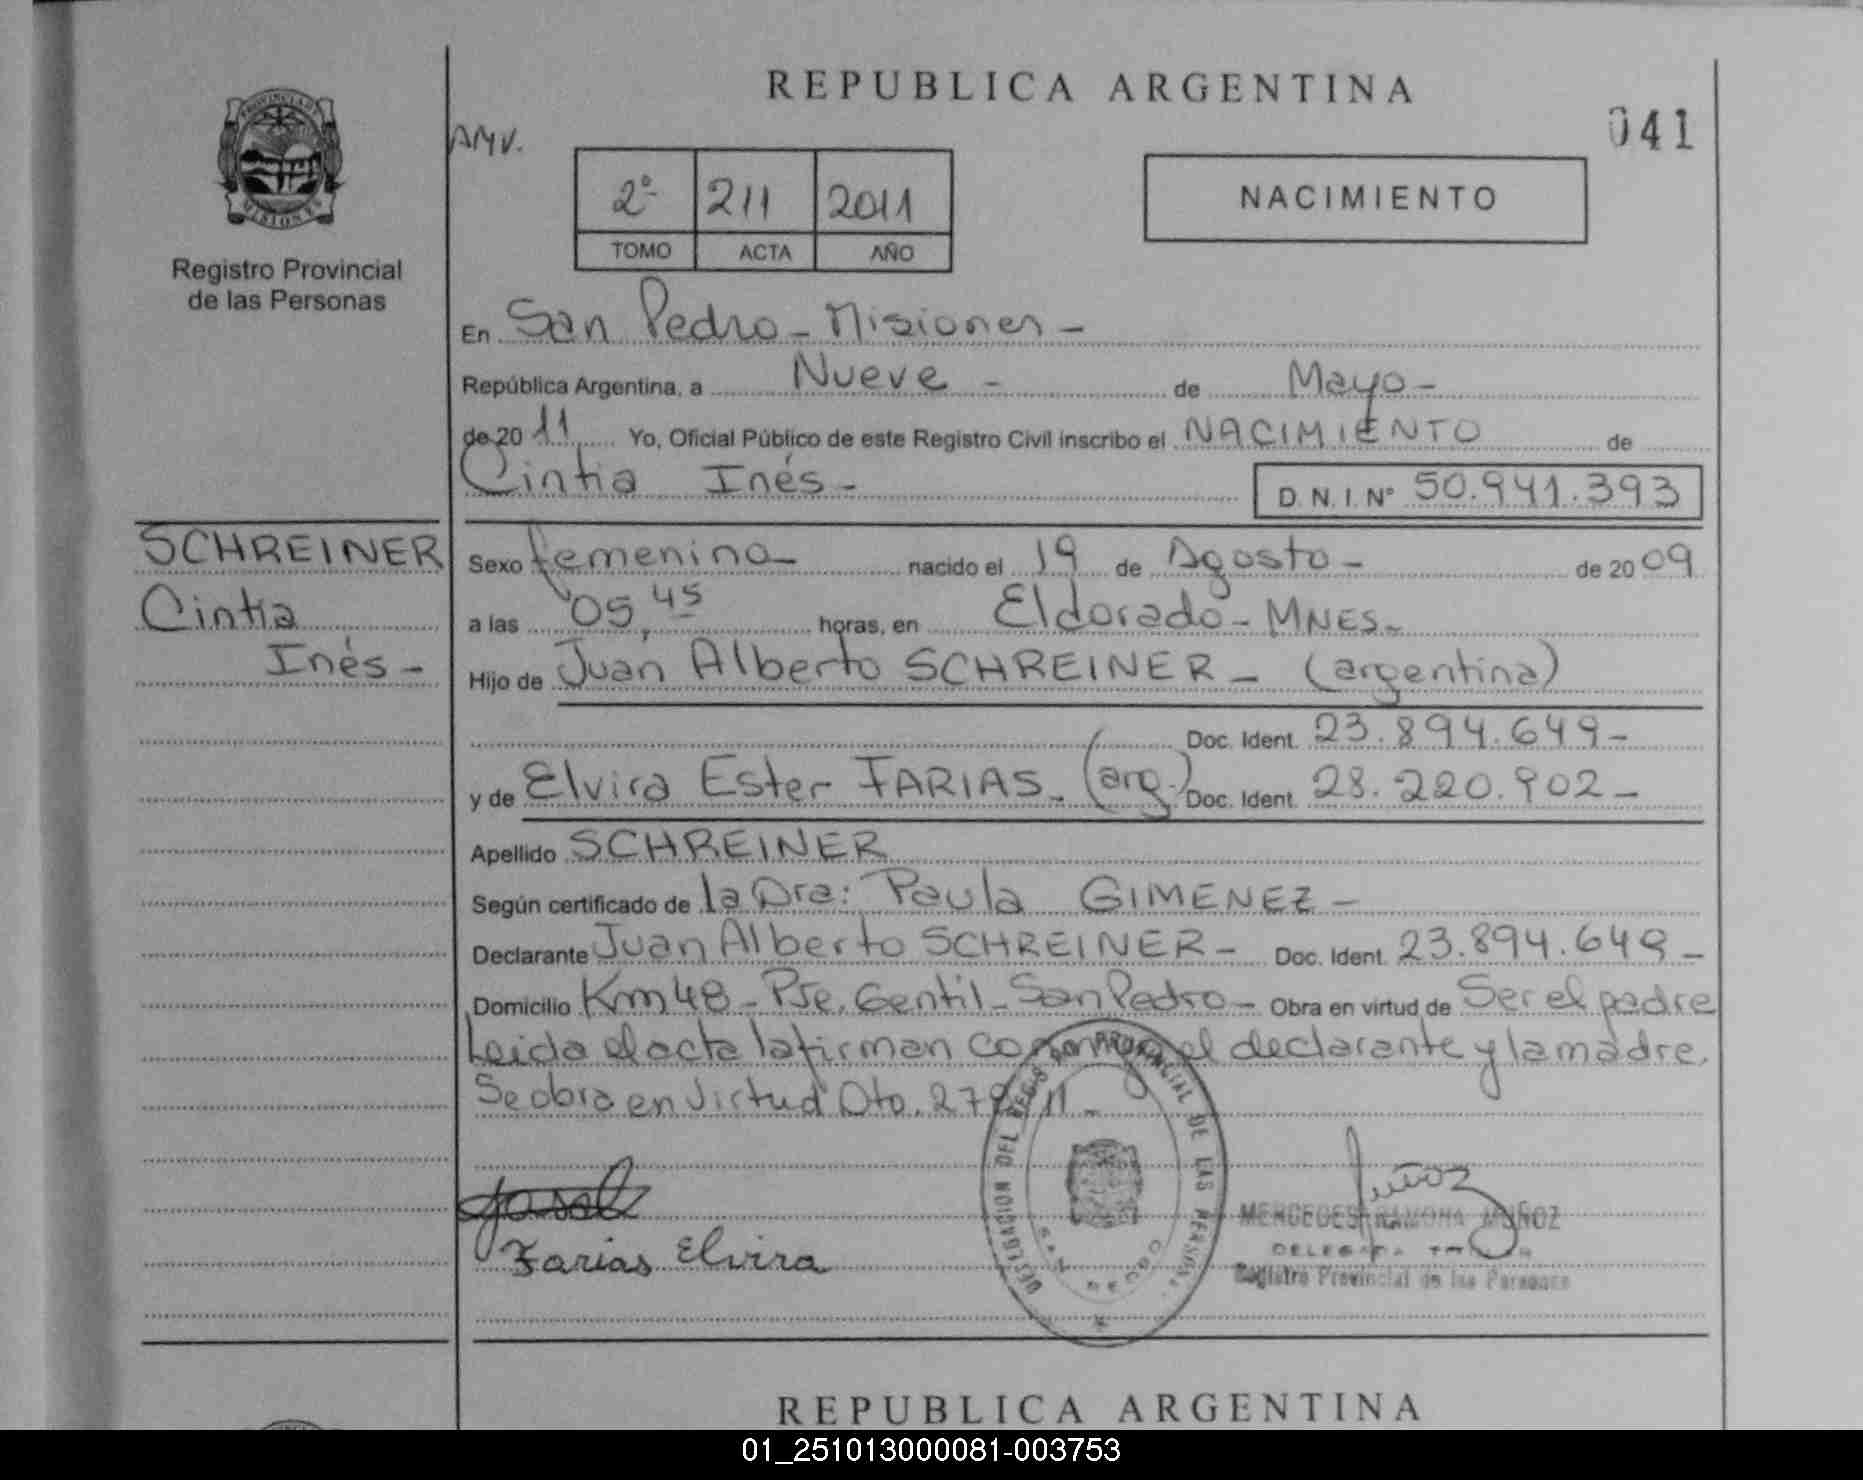 REPUBLICA ARGENTINA
041
PROVINCIA DE MISIONES
Registro Provincial
de las Personas
AMV.
2º 211 2011
TOMO ACTA AÑO
NACIMIENTO
En San Pedro - Misiones -
República Argentina, a Nueve - de Mayo -
de 20 11 Yo, Oficial Público de este Registro Civil inscribo el NACIMIENTO de
Cintia Inés - D.N.I. Nº 50.941.393
SCHREINER
Cintia
Inés -
Sexo femenino - nacido el 19 de Agosto - de 20 09
a las 05,45 horas, en Eldorado - MNES -
Hijo de Juan Alberto SCHREINER - (argentina)
Doc. Ident. 23.894.649 -
y de Elvira Ester FARIAS - (arg.) Doc. Ident. 28.220.902 -
Apellido SCHREINER
Según certificado de la Dra: Paula GIMENEZ -
Declarante Juan Alberto SCHREINER - Doc. Ident. 23.894.649 -
Domicilio Km 48 - Pje. Gentil - San Pedro - Obra en virtud de Ser el padre
Leida el acta la firman conmigo el declarante y la madre.
Se obra en virtud Dto. 279/11 -
Farias Elvira
DELEGACION DEL REGIS PROVINCIAL DE LAS PERSONAS
SAN PEDRO
Muñoz
MERCEDES RAMONA MUÑOZ
DELEGADA
Registro Provincial de las Personas
REPUBLICA ARGENTINA
01_251013000081-003753